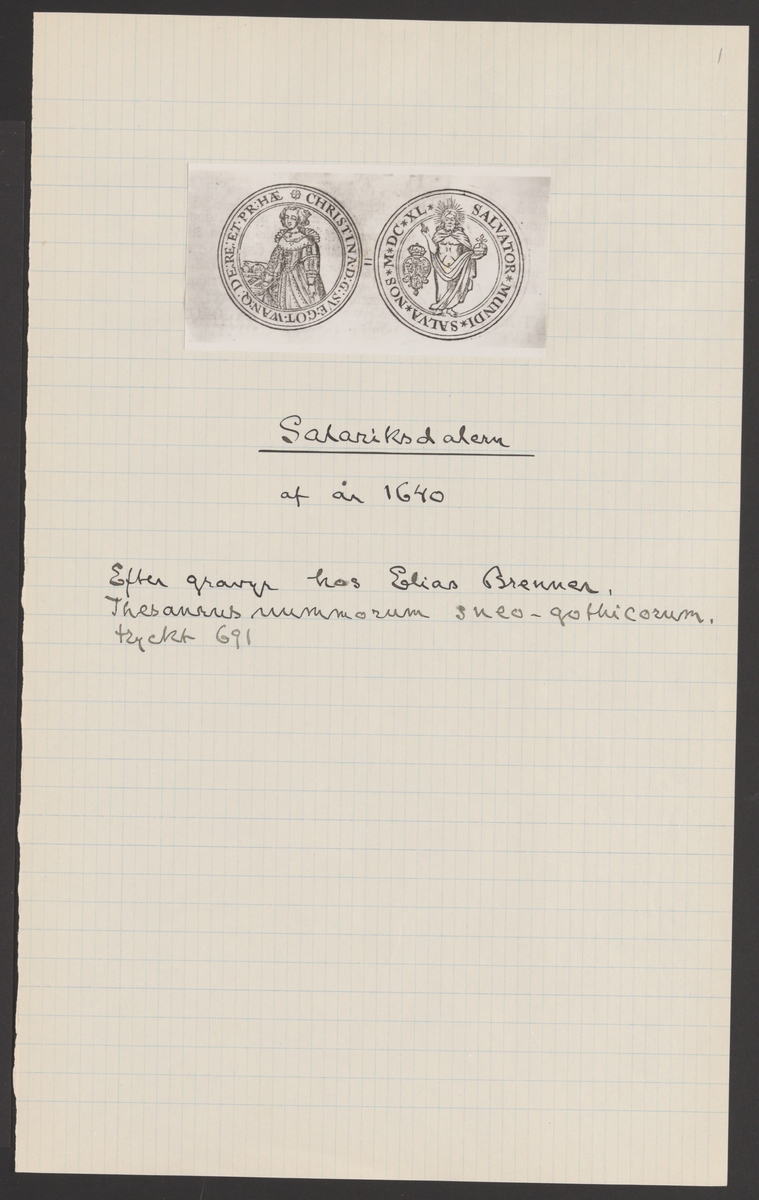 1
CHRISTINA·D·G·SVE·GOT·WANQ·DE·RE·ET·PR·HÆ
SALVATOR*MUNDI*SALVA*NOS*M*DC*XL*
Salariksdalern
af år 1640
Efter gravyr hos Elias Brenner,
Thesaurus nummorum sueo-gothicorum.
tryckt 691